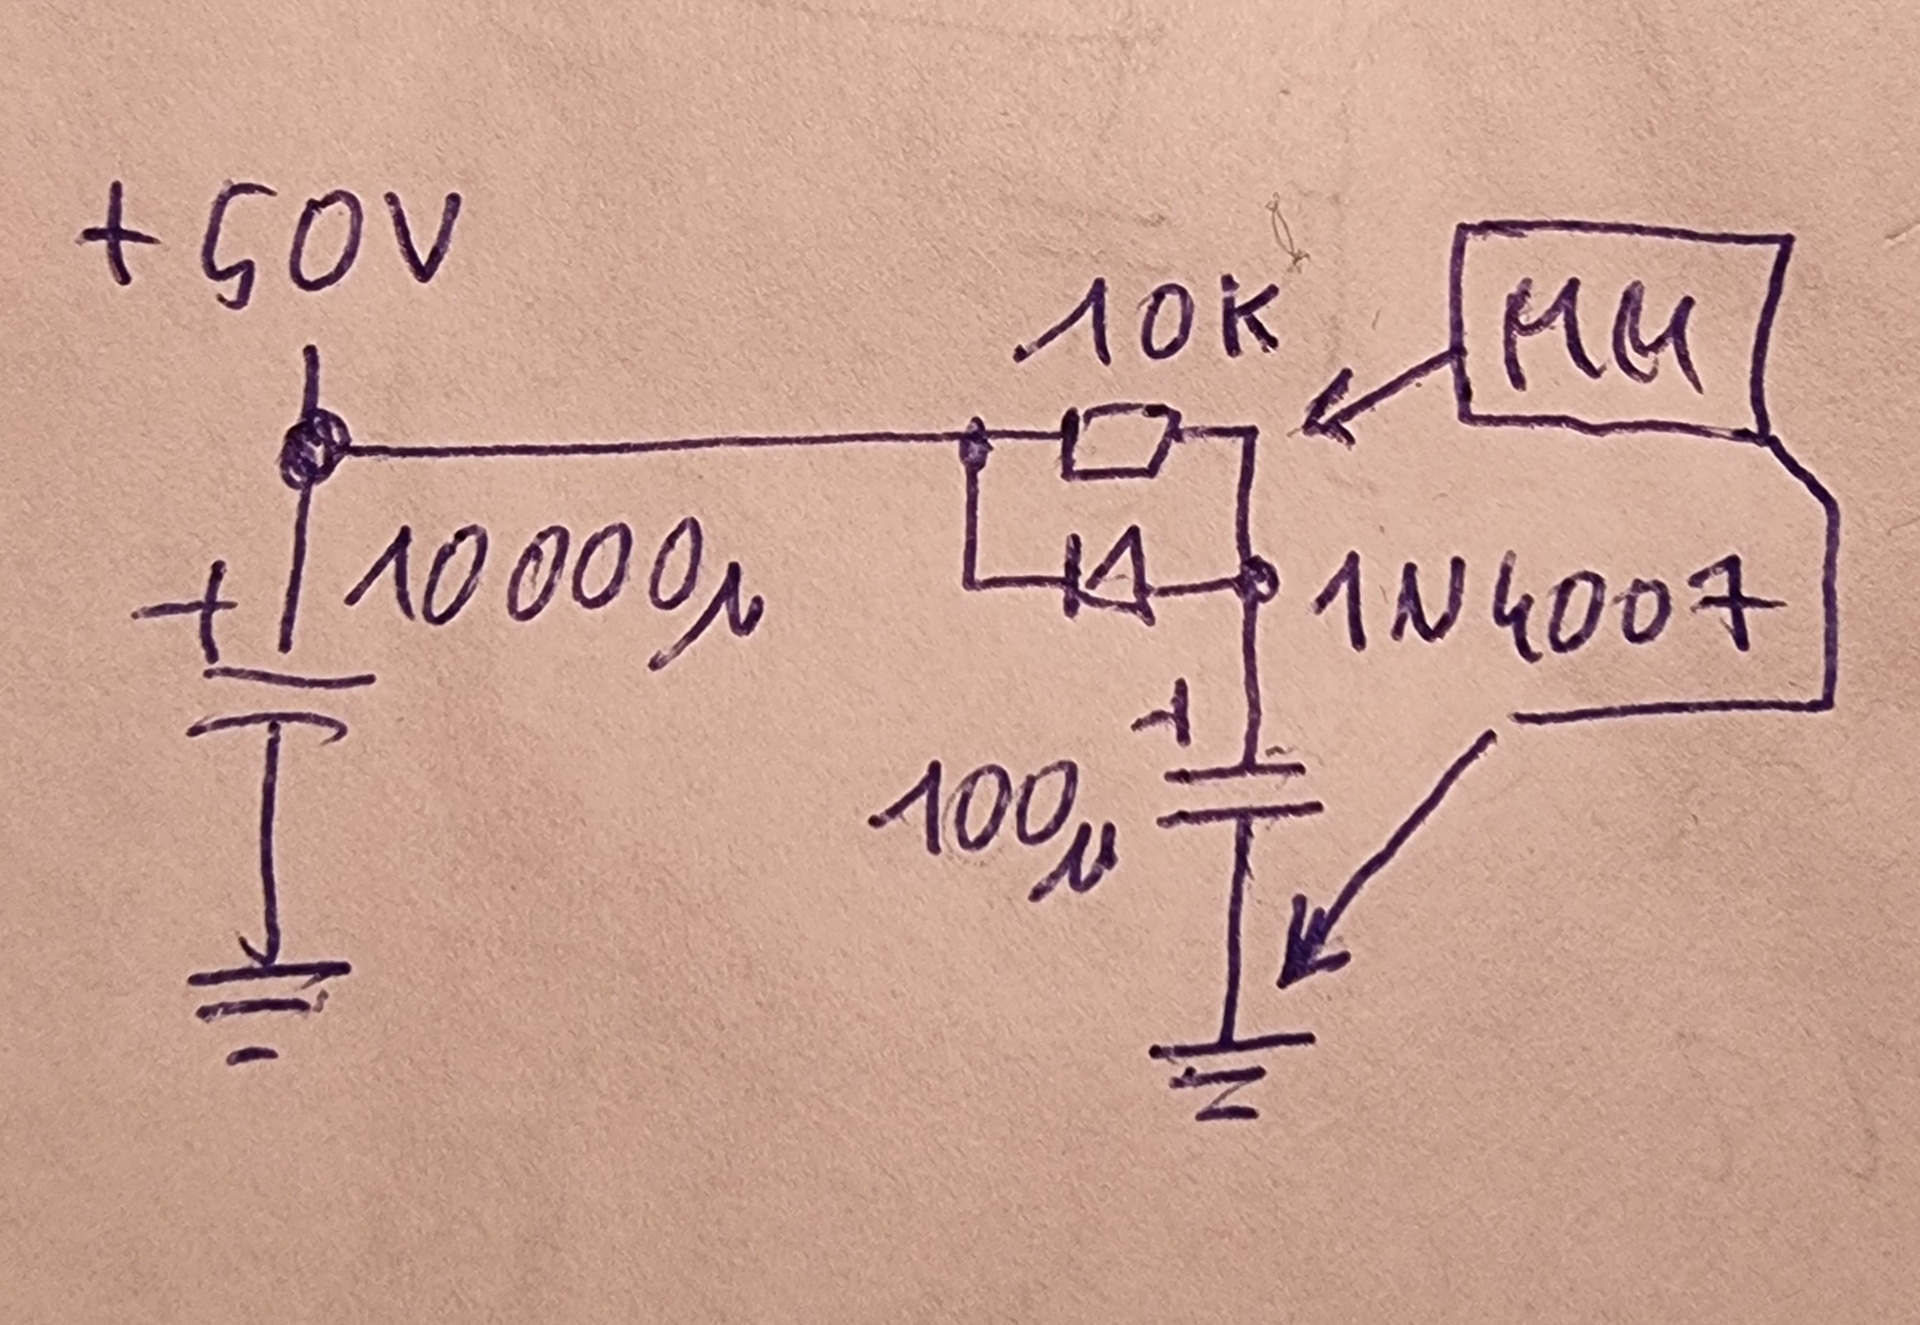 +50V
10K
MM
+
10000µ
1N4007
+
100µ